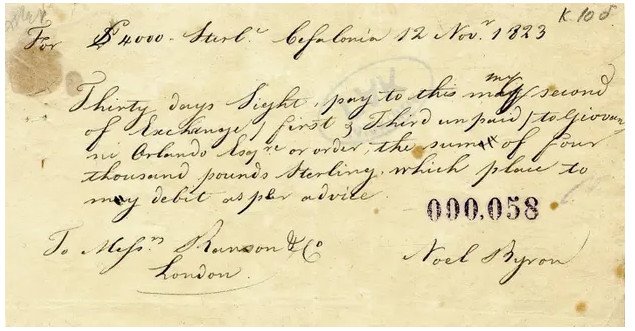 K. 108
For £ 4000 - Sterl.g Cefalonia 12 Nov.r 1823
Thirty days Sight, pay to this my second
of Exchange, / first & Third unpaid / to Giovan
ni Orlando Esqre or order, the sum of four
thousand pounds Sterling, which place to
my debit as per advice.
000,058
To Mess.rs Ranson & Co Noel Byron
London